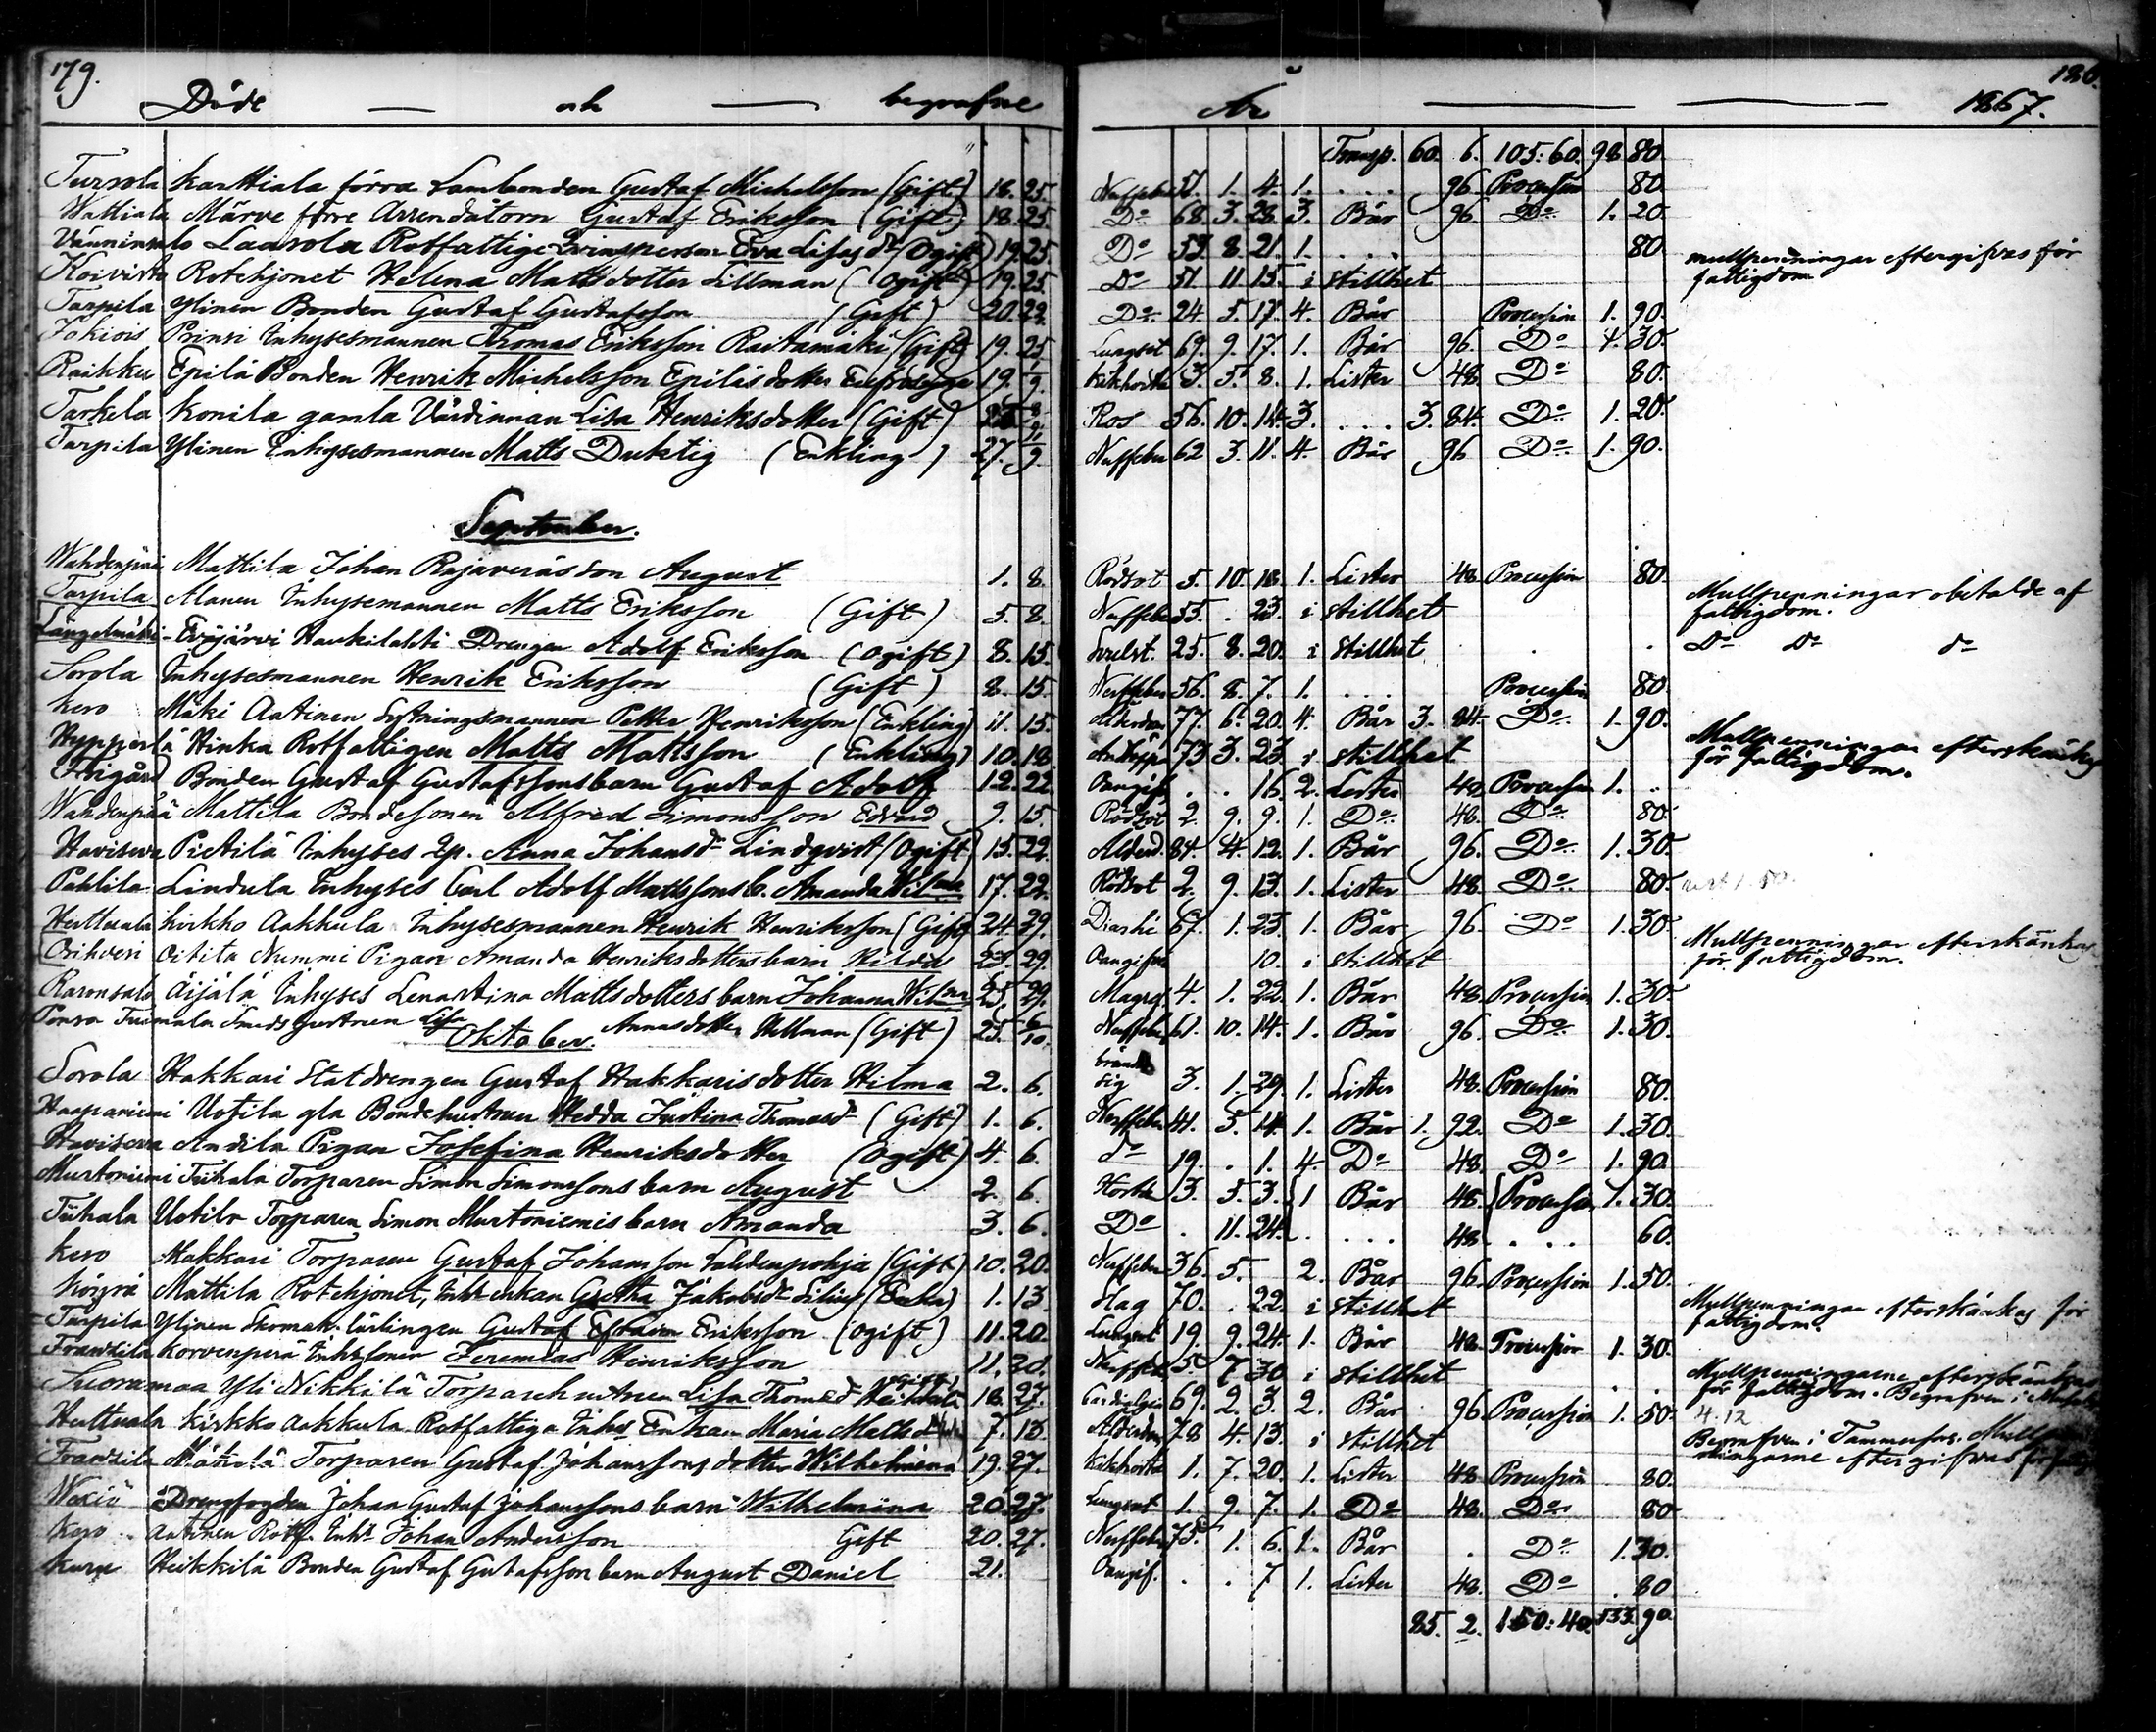 179.
Döde — och — begrafne
Tursola Karttiala förra Lambonden Gustaf Michelsson (Gift) 18. 25.
Wattiala Märve förre Arrendatorn Gustaf Eriksson (Gift) 18. 25.
Laurola Rotfattige Eva (Ogift) 19. 25.
Koivisto Rotehjonet Helena Mattsdotter Lillman (Ogift) 19. 25.
Tarpila Ylinen Bonden Gustaf Gustafsson (Gift) 20. 22.
Jokiois Prinsi Inhysesmannen Thomas Eriksson Raitamäki (Gift) 19. 25.
Raikku Epilä Bonden Henrik Michelsson Epiläs dotter 19. 1/9.
Tarkela Konila gamla Värdinnan Lisa Henriksdotter (Gift) 8/9.
Tarpila Ylinen Inhysesmannen Matts Duktig (Enkling) 27. 1/9.
September.
Wahdenjärvi Mattila Johan Rajaveräs son August 1. 8.
Tarpila Alanen Inhysesmannen Matts Eriksson (Gift) 5. 8.
Längelmäki Eväjärvi Haukilahti Drengen Adolf Eriksson (Ogift) 8. 15.
Sorola Inhysesmannen Henrik Eriksson (Gift) 8. 15.
Kero Mäki Aatinen Sytningsmannen Petter Henriksson (Enkling) 11. 15.
Hypperlä Hinka Rotfattigen Matts Mattsson (Enkling) 10. 18.
Bonden Gustaf Gustafssons barn Gustaf Adolf 12. 22.
Mattila Bondesonen Alfred Simonsson Edvard 9. 15.
Haviseva Pietilä Inhyses Qp. Anna Johansdr Lindqvist (Ogift) 15. 22.
Pahlila Lindula Inhyses Carl Adolf Mattssons b. Amanda Wilma 17. 22.
Herttuala Kirkko Aakkula Inhysesmannen Henrik Henriksson (Gift) 24. 29.
Orihvesi Oitila Nummi Pigan Amanda Henriksdotters barn Hilda 23. 29.
Raronsalo Äijälä Inhyses Lenastina Mattsdotters barn Johanna Wilma 25. 29.
Ponsa Tuomala Lisa Annasdotter Hellman (Gift) 25. 6/10.
Oktober.
Sorola Hakkari Statdrengen Gustaf Hakkaris dotter Hilma 2. 6.
Haapaniemi Uotila gla Bondehustrun Hedda Justina Thomasdr (Gift) 1. 6.
Haviseva Andila Pigan Josefina Henriksdotter (Ogift) 4. 6.
Murtoniemi Tiihala Torparen Simon Simonssons barn August 2. 6.
Tiihala Uotila Torparen Simon Murtoniemis barn Amanda 3. 6.
Kero Makkari Torparen Gustaf Johansson Lahdenpohja (Gift) 10. 20.
Mattila Rotehjonet, Inhs enkan Gretha Jakobsdr (Enka) 1. 13.
Tarpila Ylinen Skomak. lärlingen Gustaf Efraim Eriksson (Ogift) 11. 20.
Frantzila Korvenperä Inhs sonen Jeremias Henriksson 11. 20.
Suoramaa Yli Nikkilä Torparehustrun Lisa Thomasdr Heikkilä 18. 27.
Herttuala Kirkko Aakkula Rotfattiga Inhs Enkan Maria Mattsdr 7. 13.
Frantzila Mätölä Torparen Gustaf Johanssons dotter Wilhelmina 19. 27.
Drengfogden Johan Gustaf Johanssons barn Wilhelmina 20. 27.
Kero Aatinen Rotf. Inhs Johan Andersson Gift 20. 27.
Heikkilä Bonden Gustaf Gustafsson barn August Daniel 21.
180.
År — 1867.
Transp. 60. 6. 105:60. 98. 80.
Nerffeber 51. 1. 4. 1. . . . 96. Procession 80.
Do 68. 3. 28. 3. Bår 96. Do 1. 20.
Do 53. 8. 21. 1. . . . 80.
mullpenningar eftergifvas för
fattigdom
Do 51 11 15. i stillhet
Do 24. 5. 17. 4. Bår Procession 1. 90.
Lungsot 69. 9. 17. 1. Bår 96. Do 4. 30.
Kikhosta 3. 5. 8. 1. Lister 48. Do 80.
Ros 56. 10. 14. 3. . . . 3. 84. Do 1. 20.
Nerffeber 62 3. 11. 4. Bår 96 Do 1. 90.
Rödsot 5. 10. 18. 1. Lister 48. Procession 80.
Mullpenningar obetalde af
fattigdom.
Nerffeber 55. . 23. i stillhet
25. 8. 20. i stillhet
Do Do do
Nerffeber 56. 8. 7. 1. . . . Procession 80.
Ålderdom 77. 6. 20. 4. Bår 3. 84. Do 1. 90.
Mullpenningar efterskänkas
för fattigdom.
73 3. 23. i stillhet
Oangifv. . . 16. 2. Lister 48. Procession 1. ..
Rödsot 2. 9. 9. 1. Do 48. Do 80.
Ålderd. 84. 4. 12. 1. Bår 96. Do 1. 30.
Rödsot 2. 9. 13. 1. Lister 48. Do 80.
67. 1. 23. 1. Bår 96. Do 1. 30.
Mullpenningar efterskänkas
för fattigdom.
Oangifven 10. i stillhet
4. 1. 22. 1. Bår 48. Procession 1. 30.
Nerffeber 61. 10. 14. 1. Bår 96. Do 1. 30.
brände
sig 3. 1. 29. 1. Lister 48. Procession 80.
Nerffeber 41. 5. 14. 1. Bår 1. 92. Do 1. 30.
do 19. . 1. 4. Do 48. Do 1. 90.
Hosta 3. 5. 3. 1 Bår 48. Procession 1. 30.
Do . 11. 24. . . . 48. . . . 60.
Nerffeber 36. 5. 2. Bår 96. Procession 1. 50.
Slag 70. . 22. i stillhet
Mullpenningar efterskänkas för
fattigdom.
Lungsot 19. 9. 24. 1. Bår 48. Procession 1. 30.
Nerffeber 50 7. 30 i stillhet
Mullpenningarne efterskänkas
för fattigdom. Begrafven i
69. 2. 3. 2. Bår 96. Procession 1. 50.
4.12
Ålderdom 78. 4. 13. i stillhet
Begrafven i Tammerfors.
eftergifvas för
Kikhosta 1. 7. 20. 1. Lister 48. Procession 80.
Lungsot 1. 9. 7. 1. Do 48. Do 80
Nerffeber 75. 1. 6. 1. Bår . Do 1.30.
Oangif. . . 7 1. Lister 48. Do . 80
85. 2. 150:40. 133. 90.